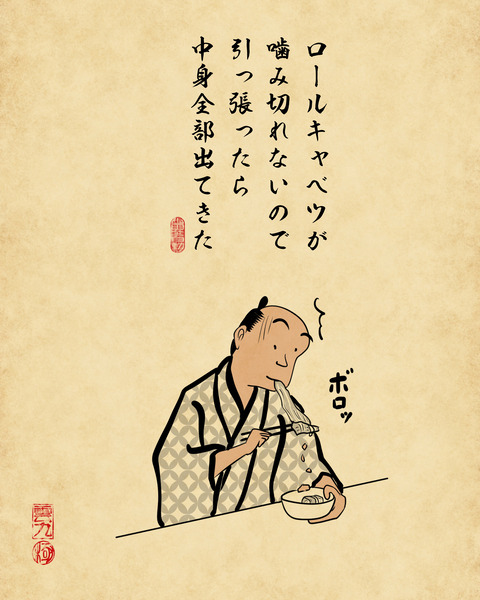 ロールキャベツが
噛み切れないので
引っ張ったら
中身全部出てきた
ボロッ